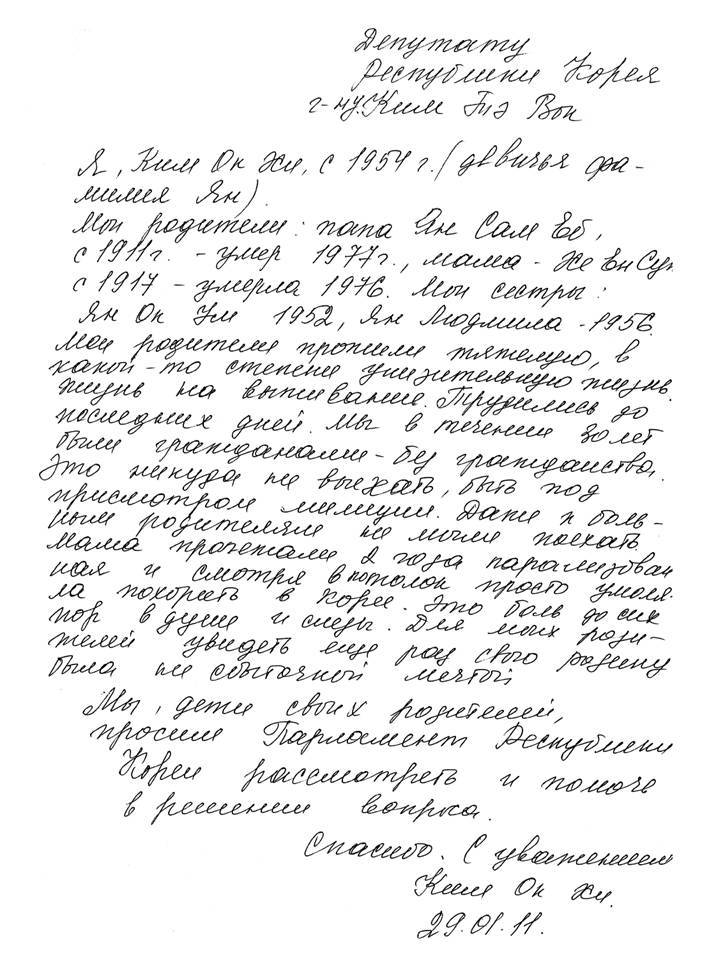 Депутату
Республики Корея
г-ну. Ким Тэ Вон
Я, Ким Ок Хи, с 1954 г. (девичья фа-
милия Ян).
Мои родители: папа Ян Сам Еб,
с 1911г. - умер 1977г., мама - Же Ен Сун
с 1917 - умерла 1976. Мои сестры:
Ян Ок Ум 1952, Ян Людмила - 1956.
Мои родители прожили тяжелую, в
какой-то степени унизительную жизнь.
Жизнь на выживание. Трудились до
последних дней. Мы в течении 30 лет
были гражданами - без гражданства.
Это никуда не выехать, быть под
присмотром милиции. Даже к боль-
ным родителям не могли поехать.
Мама пролежала 2 года парализован
ная и смотря в потолок просто умоля-
ла похоронить в Корее. Это боль до сих
пор в душе и следы. Для моих роди-
телей увидеть еще раз свою родину
была не сбыточной мечтой
Мы, дети своих родителей,
просим Парламент Республики
Кореи рассмотреть и помочь
в решении вопроса.
Спасибо. С уважением
Ким Ок Хи.
29.01.11.